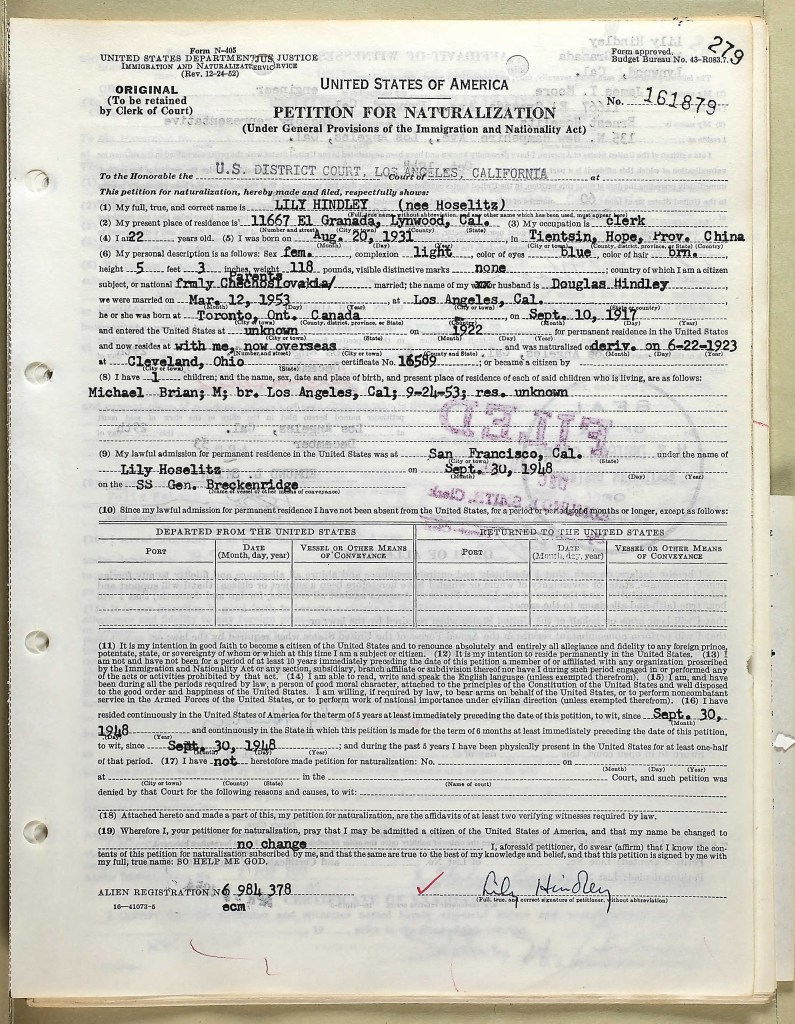 279
Form N-405
UNITED STATES DEPARTMENT JUS JUSTICE
IMMIGRATION AND NATURALIZAT SERVICE
(Rev. 12-24-52)
Form approved.
Budget Bureau No. 43-R083.7.
ORIGINAL
(To be retained
by Clerk of Court)
UNITED STATES OF AMERICA
PETITION FOR NATURALIZATION
(Under General Provisions of the Immigration and Nationality Act)
No. 161879
To the Honorable the U.S. DISTRICT COURT, LOS ANGELES, CALIFORNIA at
Court of
This petition for naturalization, hereby made and filed, respectfully shows:
(1) My full, true, and correct name is LILY HINDLEY (nee Hoselitz)
(Full, true name, without abbreviation, and any other name which has been used, must appear here)
(2) My present place of residence is 11667 El Granada, Lynwood, Cal. (3) My occupation is clerk
(Number and street) (City or town) (County) (State)
(4) I am 22 years old. (5) I was born on Aug. 20, 1931, in Tientsin, Hope, Prov. China
(Month) (Day) (Year) (City or town) (County, district, province, or State) (Country)
(6) My personal description is as follows: Sex fem., complexion light, color of eyes blue, color of hair brn.
height 5 feet 3 inches, weight 118 pounds, visible distinctive marks none; country of which I am a citizen
Parents
subject, or national frmly Chechoslovakia/ married; the name of my xx or husband is Douglas Hindley
we were married on Mar. 12, 1953, at Los Angeles, Cal.
(Month) (Day) (Year) (City or town) (State or country)
he or she was born at Toronto, Ont. Canada, on Sept. 10, 1917
(City or town) (County, district, province, or State) (Country) (Month) (Day) (Year)
and entered the United States at unknown on 1922 for permanent residence in the United
(City or town) (State) (Month) (Day) (Year)
States and now resides at with me, now overseas and was naturalized on deriv. on 6-22-1923
(Number and street) (City or town) (County and State) (Month) (Day) (Year)
at Cleveland, Ohio certificate No. 16589; or became a citizen by
(City or town) (State)
(8) I have 1 children; and the name, sex, date and place of birth, and present place of residence of each of said children who is living, are as follows:
Michael Brian; M; br. Los Angeles, Cal; 9-24-53; res. unknown
FILED
(9) My lawful admission for permanent residence in the United States was at San Francisco, Cal. under the name of
(City or town) (State)
Lily Hoselitz on Sept. 30, 1948
(Month) (Day) (Year)
on the SS Gen. Breckenridge
(Name of vessel or other means of conveyance)
(10) Since my lawful admission for permanent residence I have not been absent from the United States, for a period or periods of 6 months or longer, except as follows:
DEPARTED FROM THE UNITED STATES RETURNED TO THE UNITED STATES
PORT DATE (Month, day, year) VESSEL OR OTHER MEANS OF CONVEYANCE PORT DATE (Month, day, year) VESSEL OR OTHER MEANS OF CONVEYANCE
(11) It is my intention in good faith to become a citizen of the United States and to renounce absolutely and entirely all allegiance and fidelity to any foreign prince,
potentate, state, or sovereignty of whom or which at this time I am a subject or citizen. (12) It is my intention to reside permanently in the United States. (13) I
am not and have not been for a period of at least 10 years immediately preceding the date of this petition a member of or affiliated with any organization proscribed
by the Immigration and Nationality Act or any section, subsidiary, branch affiliate or subdivision thereof nor have I during such period engaged in or performed any
of the acts or activities prohibited by that act. (14) I am able to read, write and speak the English language (unless exempted therefrom). (15) I am, and have
been during all the periods required by law, a person of good moral character, attached to the principles of the Constitution of the United States and well disposed
to the good order and happiness of the United States. I am willing, if required by law, to bear arms on behalf of the United States, or to perform noncombatant
service in the Armed Forces of the United States, or to perform work of national importance under civilian direction (unless exempted therefrom). (16) I have
resided continuously in the United States of America for the term of 5 years at least immediately preceding the date of this petition, to wit, since Sept. 30,
(Month)
1948 and continuously in the State in which this petition is made for the term of 6 months at least immediately preceding the date of this petition,
(Day) (Year)
to wit, since Sept. 30, 1948; and during the past 5 years I have been physically present in the United States for at least one-half
(Month) (Day) (Year)
of that period. (17) I have not heretofore made petition for naturalization: No. on
(Month) (Day) (Year)
at in the Court, and such petition was
(City or town) (County) (State) (Name of court)
denied by that Court for the following reasons and causes, to wit:
(18) Attached hereto and made a part of this, my petition for naturalization, are the affidavits of at least two verifying witnesses required by law.
(19) Wherefore I, your petitioner for naturalization, pray that I may be admitted a citizen of the United States of America, and that my name be changed to
no change I, aforesaid petitioner, do swear (affirm) that I know the con-
tents of this petition for naturalization subscribed by me, and that the same are true to the best of my knowledge and belief, and that this petition is signed by me with
my full, true name: SO HELP ME GOD.
ALIEN REGISTRATION No 6 984 378
Lily Hindley
(Full, true, and correct signature of petitioner, without abbreviation)
16—41073-5
ecm